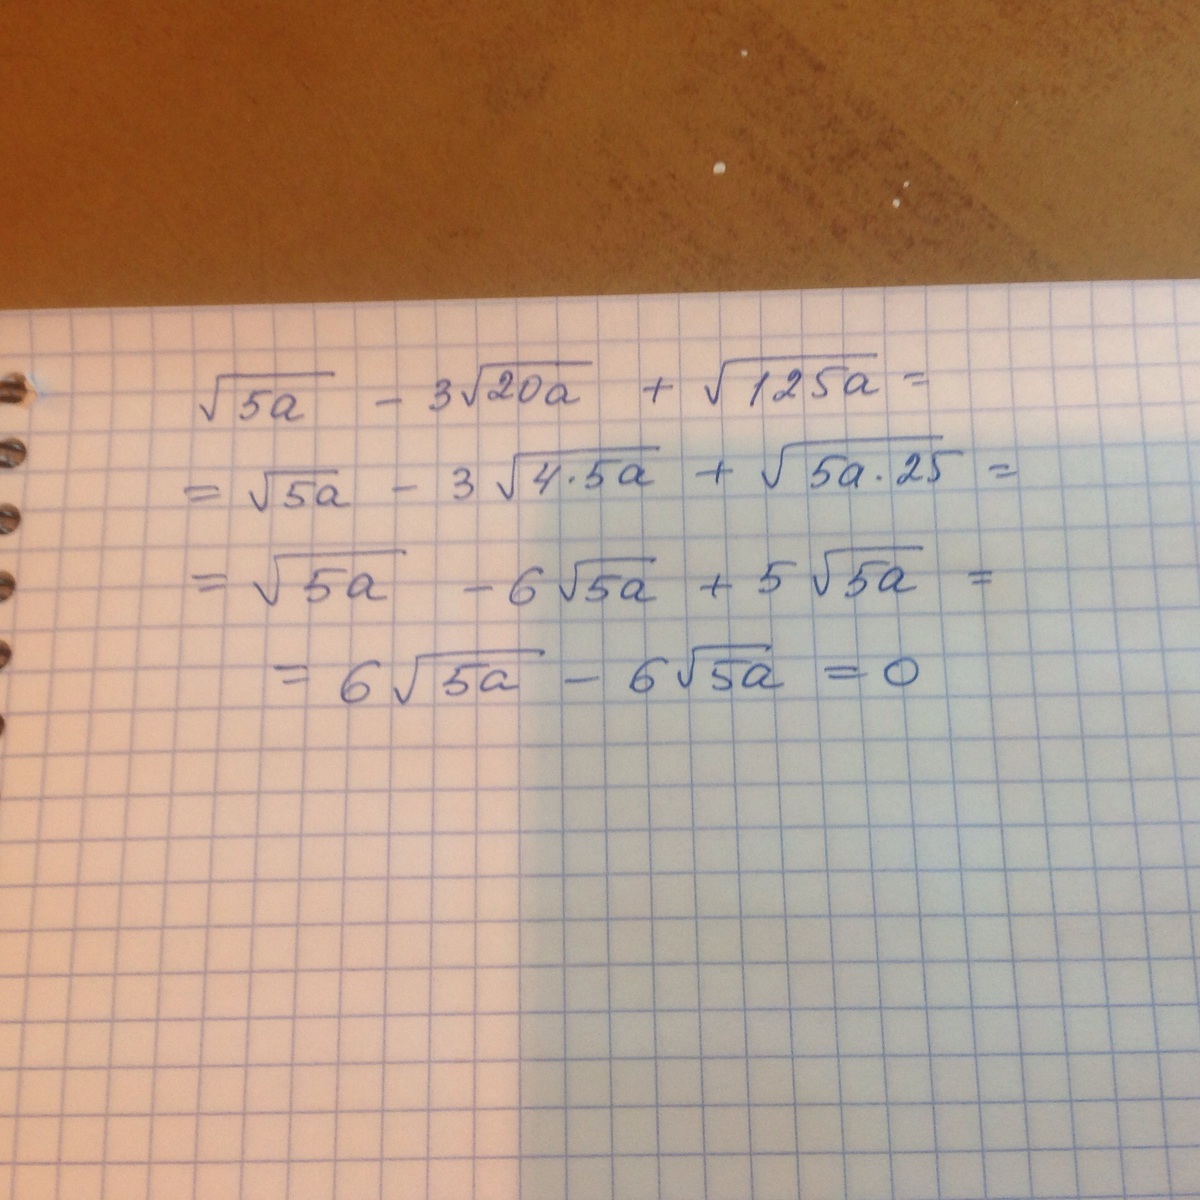 √5a - 3√20a + √125a =
= √5a - 3√4·5a + √5a·25 =
= √5a - 6√5a + 5√5a =
= 6√5a - 6√5a = 0